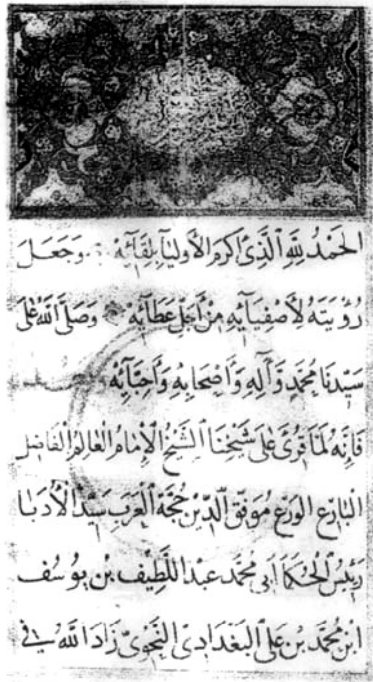 الحَمْدُ لِلَّهِ الَّذِى أَكرَمَ الأَوليَآءَ بِلِقَآئِهْ وَجَعَلَ
رُؤْيَتَهُ لِأَصْفِيَآئِهِ مِنْ أَجَلِّ عَطَآئِهْ وَصَلَّى اللَّهُ عَلَى
سَيِّدِنَا مُحَمَّدٍ وَآلِهِ وَأَصْحَابِهِ وَأَحِبَّآئِهْ
فَإِنَّهُ لَمَّا قُرِئَ عَلَى شَيْخِنَا الشَّيْخُ الإِمَامُ العَالِمُ الفَاضِل
البَارِع الوَرِع مُوَفَّق الدِّيْن حُجَّة العَرَب سَيِّد الأُدَبَا
رَئِيسُ الحُكَمَاءِ أَبِى مُحَمَّد عَبْد اللَّطِيْف بْن يُوسُف
ابْن مُحَمَّد بْن عَلَى البَغْدَادِىّ النَّحْوِىّ زَادَ اللَّهُ فِى